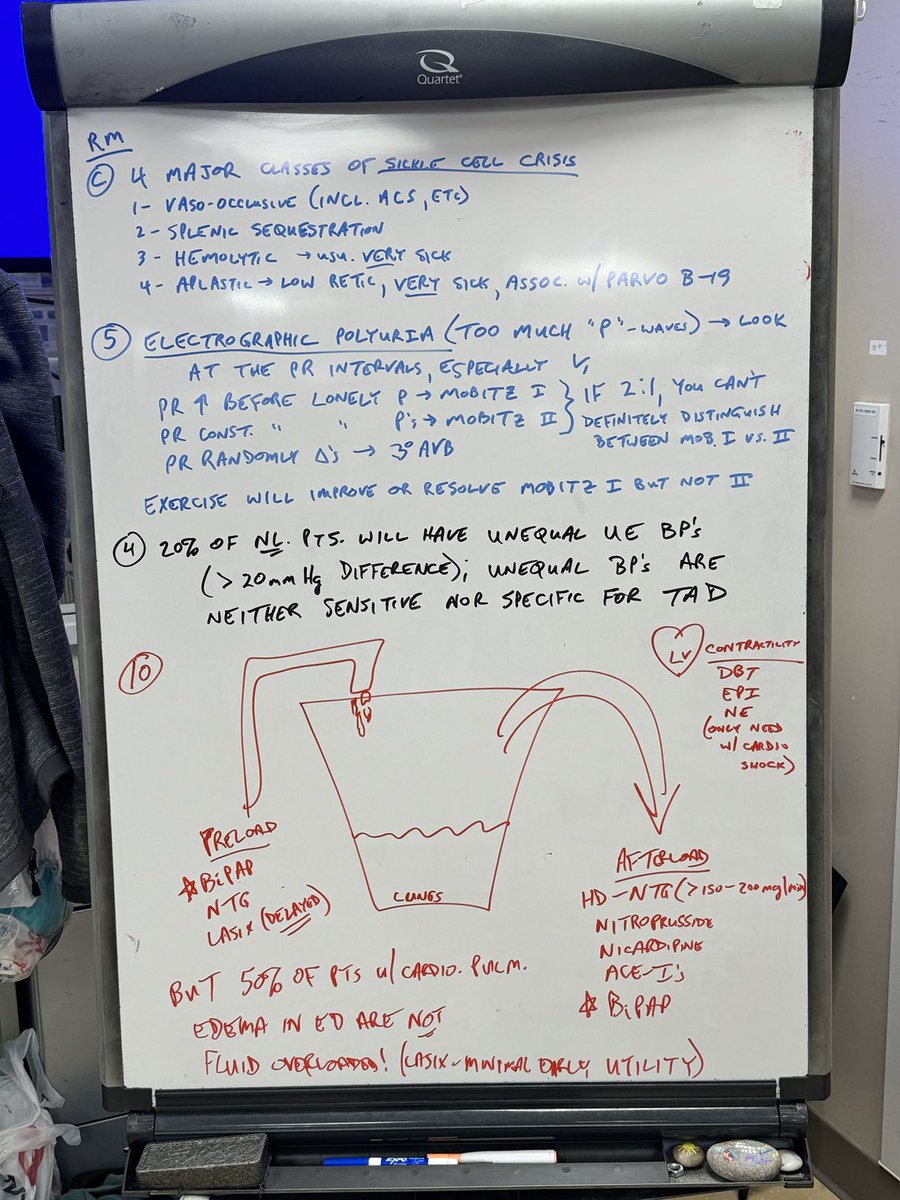 Quartet
RM
C 4 MAJOR CLASSES OF SICKLE CELL CRISIS
1- VASO-OCCLUSIVE (INCL. ACS, ETC)
2- SPLENIC SEQUESTRATION
3- HEMOLYTIC → USU. VERY SICK
4- APLASTIC → LOW RETIC, VERY SICK, ASSOC. W/ PARVO B-19
5 ELECTROGRAPHIC POLYURIA (TOO MUCH "P"-WAVES) → LOOK
AT THE PR INTERVALS, ESPECIALLY V1
PR ↑ BEFORE LONELY P → MOBITZ I } IF 2:1, YOU CAN'T
PR CONST. " " P's → MOBITZ II } DEFINITELY DISTINGUISH
PR RANDOMLY Δ's → 3° AVB BETWEEN MOB. I VS. II
EXERCISE WILL IMPROVE OR RESOLVE MOBITZ I BUT NOT II
4 20% OF NL. PTS. WILL HAVE UNEQUAL UE BP's
(>20mmHg DIFFERENCE); UNEQUAL BP's ARE
NEITHER SENSITIVE NOR SPECIFIC FOR TAD
10
LV
CONTRACTILITY
DBT
EPI
NE
(ONLY NEED
W/ CARDIO
SHOCK)
PRELOAD
☆BiPAP
NTG
LASIX (DELAYED)
LUNGS
AFTERLOAD
HD-NTG (>150-200mcg/min)
NITROPRUSSIDE
NICARDIPINE
ACE-I's
☆ BiPAP
BUT 50% OF PTS W/ CARDIO. PULM.
EDEMA IN ED ARE NOT
FLUID OVERLOADED! (LASIX-MINIMAL EARLY UTILITY)
EXPO